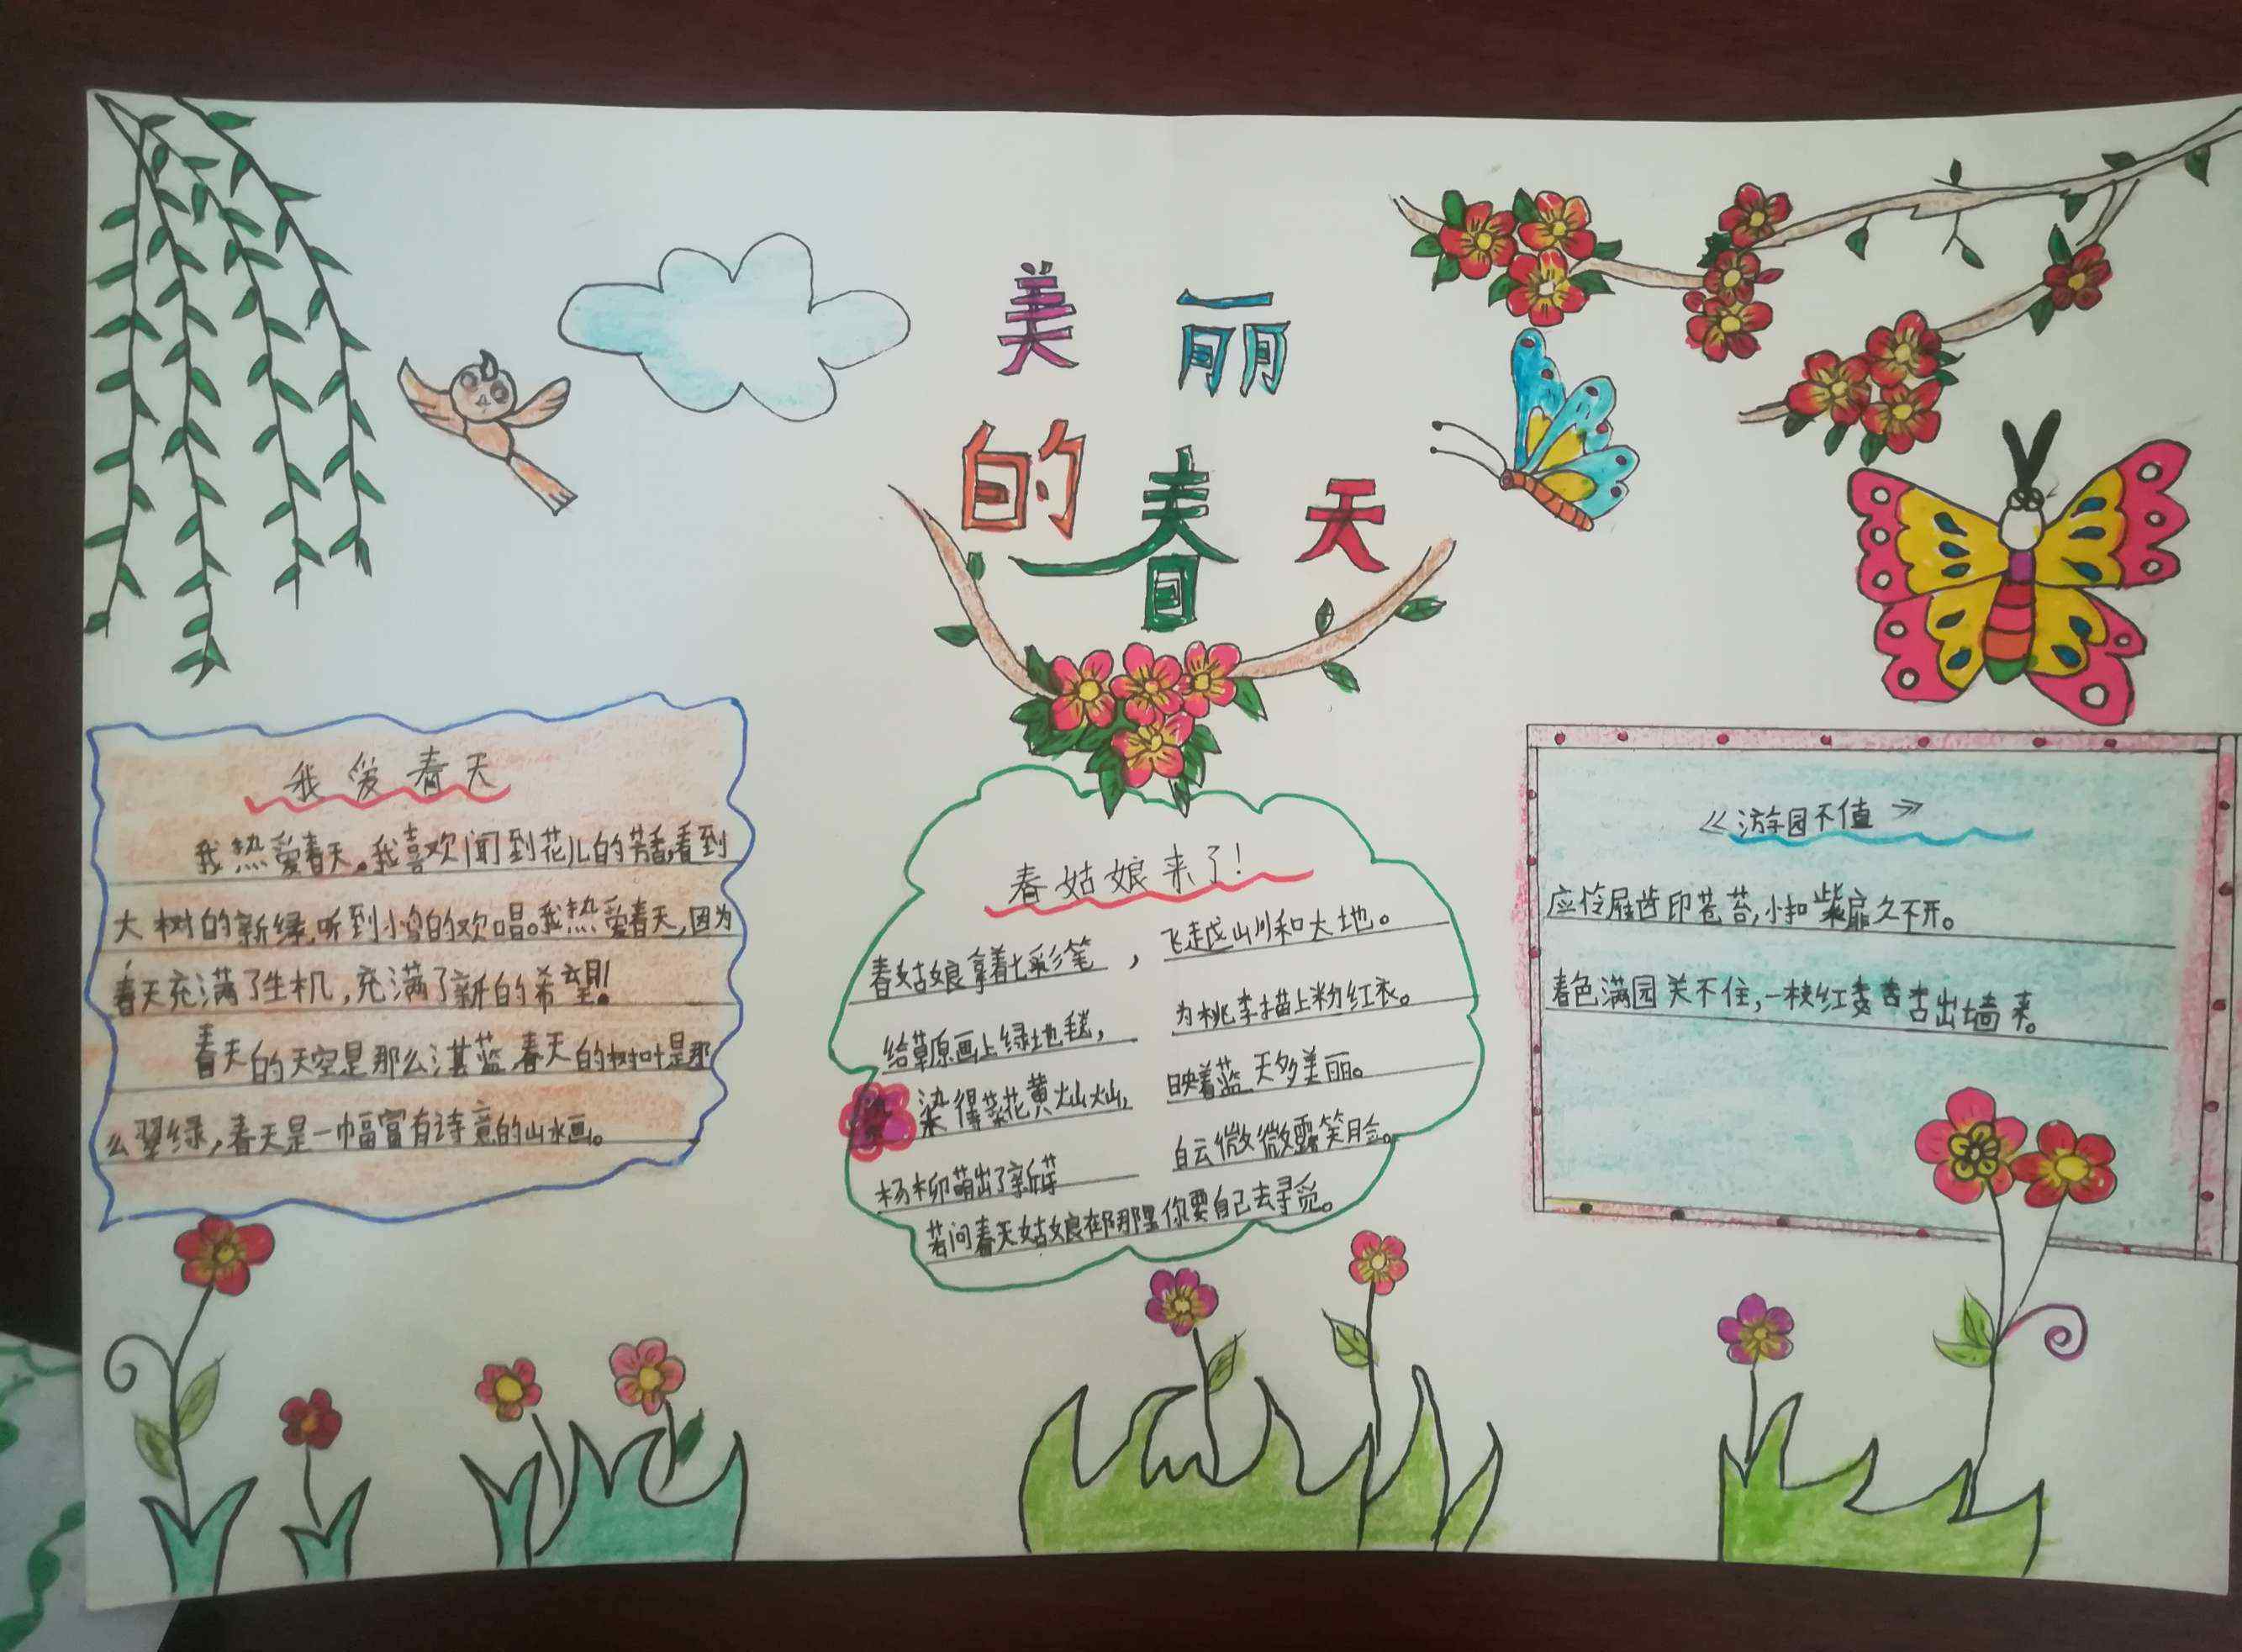 美丽
的春天
我爱春天
我热爱春天。我喜欢闻到花儿的芳香,看到
大树的新绿,听到小鸟的欢唱。我热爱春天,因为
春天充满了生机,充满了新的希望!
春天的天空是那么湛蓝,春天的树叶是那
么翠绿,春天是一幅富有诗意的山水画。
春姑娘来了!
春姑娘拿着七彩笔,飞越山川和大地。
给草原画上绿地毯,为桃李描上粉红衣。
染得菜花黄灿灿,映着蓝天多美丽。
杨柳萌出了新芽 白云微微露笑脸。
若问春天姑娘在那里你要自己去寻觅。
《游园不值》
应怜屐齿印苍苔,小扣柴扉久不开。
春色满园关不住,一枝红杏出墙来。